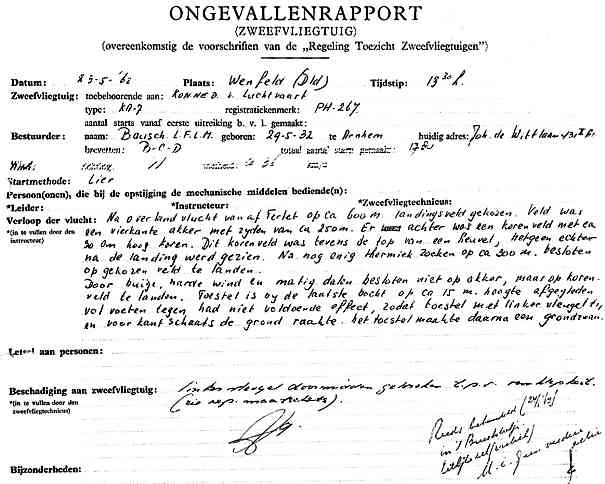 ONGEVALLENRAPPORT
(ZWEEFVLIEGTUIG)
(overeenkomstig de voorschriften van de „Regeling Toezicht Zweefvliegtuigen")
Datum: 23-5-'62 Plaats: Wenfeld (Dld) Tijdstip: 13 30 h.
Zweefvliegtuig: toebehoorende aan: KON.NED. v. Luchtvaart
type: KA-7 registratiekenmerk: PH-267
aantal starts vanaf eerste uitreiking b. v. l. gemaakt:
Bestuurder: naam: Bausch. L.F.L.M. geboren: 29-5-32 te Arnhem huidig adres: Joh. de Wittlaan
brevetten: B-C-D totaal aantal starts gemaakt:
Wind:
Startmethode: Lier
Persoon(onen), die bij de opstijging de mechanische middelen bediende(n):
*Leider: *Instructeur: *Zweefvliegtechnicus:
Verloop der vlucht: Na overlandvlucht vanaf Terlet op ca 600 m landingsveld gekozen. Veld was
*(in te vullen door den instructeur) een vierkante akker met zyden van ca 250m. Er achter was een korenveld met ca
30 cm hoog koren. Dit korenveld was tevens de top van een heuvel, hetgeen echter
na de landing werd gezien. Na nog enig thermiek zoeken op ca 300 m. besloten
op gekozen veld te landen.
Door buiige, harde wind en matig dalen besloten niet op akker, maar op koren-
veld te landen. Toestel is by de laatste bocht op ca 15 m. hoogte afgegleden
vol voeten tegen had niet voldoende effect, zodat toestel met linker vleugeltip
en voorkant schaats de grond raakte. het toestel maakte daarna een grondzwaai.
Letsel aan personen:
Beschadiging aan zweefvliegtuig: linker vleugel doormidden gebroken t.p.v.
*(in te vullen door den zweefvliegtechnicus) (zie rep.
Reeds behandeld
in 't
Bijzonderheden: